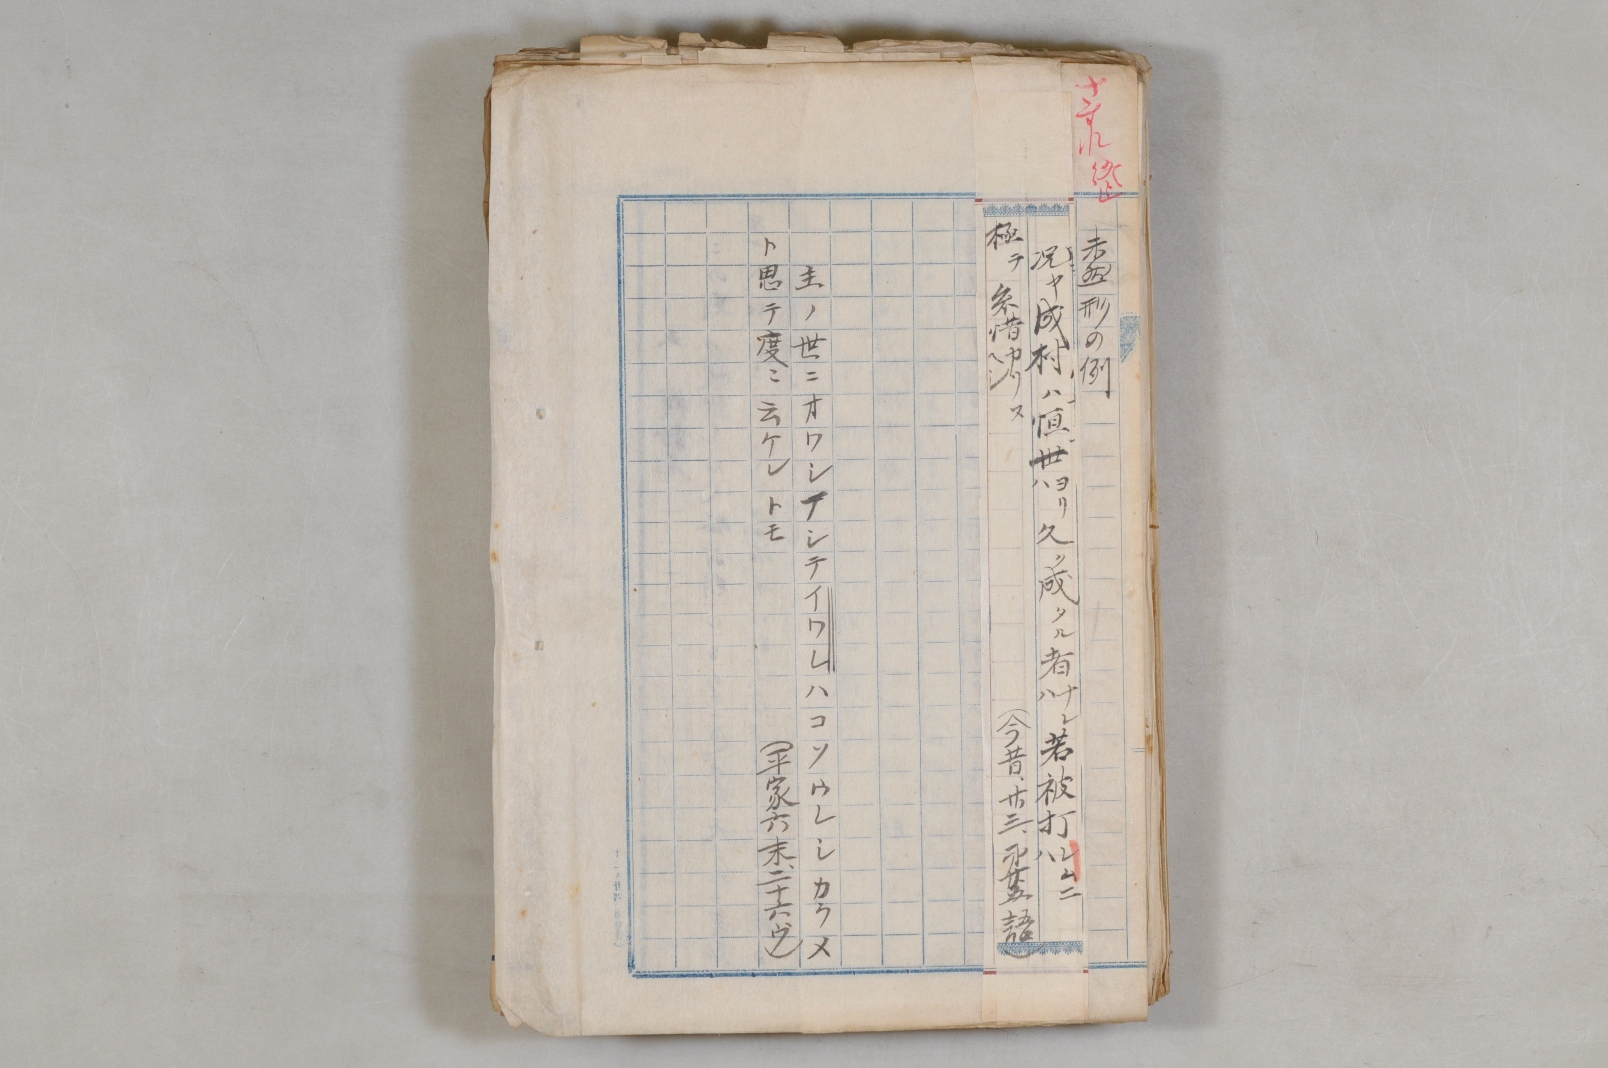 未然形の例
況ヤ成村ハ恒世ヨリハ久ク成タル者ナレハ若被打レムニハ
極テ糸惜カリヌヘシ
(今昔、廿三、廿五語)
主ノ世ニオワシマシテイワレハコソウレシカラメ
ト思テ度ミ云ケレトモ
(平家六末、二十六ウ)